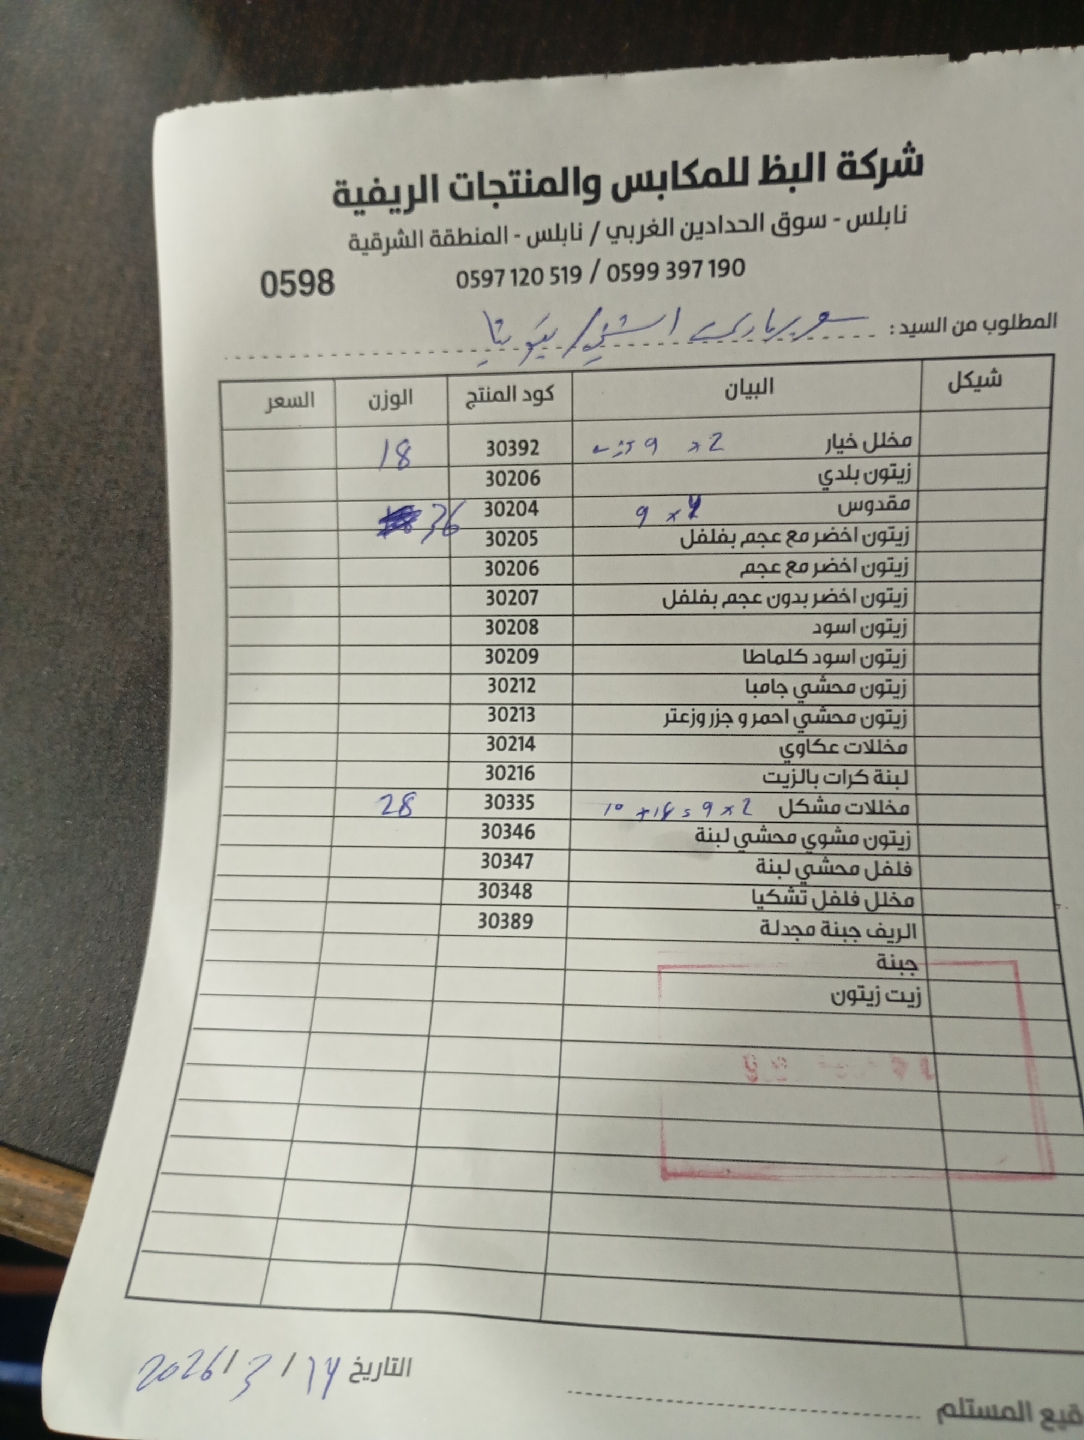 شركة البظ للمكابس والمنتجات الريفية
نابلس - سوق الحدادين الغربي / نابلس - المنطقة الشرقية
0597 120 519 / 0599 397 190
0598
المطلوب من السيد :
شيكل البيان كود المنتج الوزن السعر
مخلل خيار 2 × 9 30392 18
زيتون بلدي 30206
مقدوس 4 × 9 30204 36
زيتون اخضر مع عجم بفلفل 30205
زيتون اخضر مع عجم 30206
زيتون اخضر بدون عجم بفلفل 30207
زيتون اسود 30208
زيتون اسود كلماطا 30209
زيتون محشي جامبا 30212
زيتون محشي احمر و جزر وزعتر 30213
مخللات عكاوي 30214
لبنة كرات بالزيت 30216
مخللات مشكل 2 × 9 = 18 + 10 30335 28
زيتون مشوي محشي لبنة 30346
فلفل محشي لبنة 30347
مخلل فلفل تشكيا 30348
الريف جبنة مجدلة 30389
جبنة
زيت زيتون
التاريخ 14 / 3 / 2026
قيع المستلم